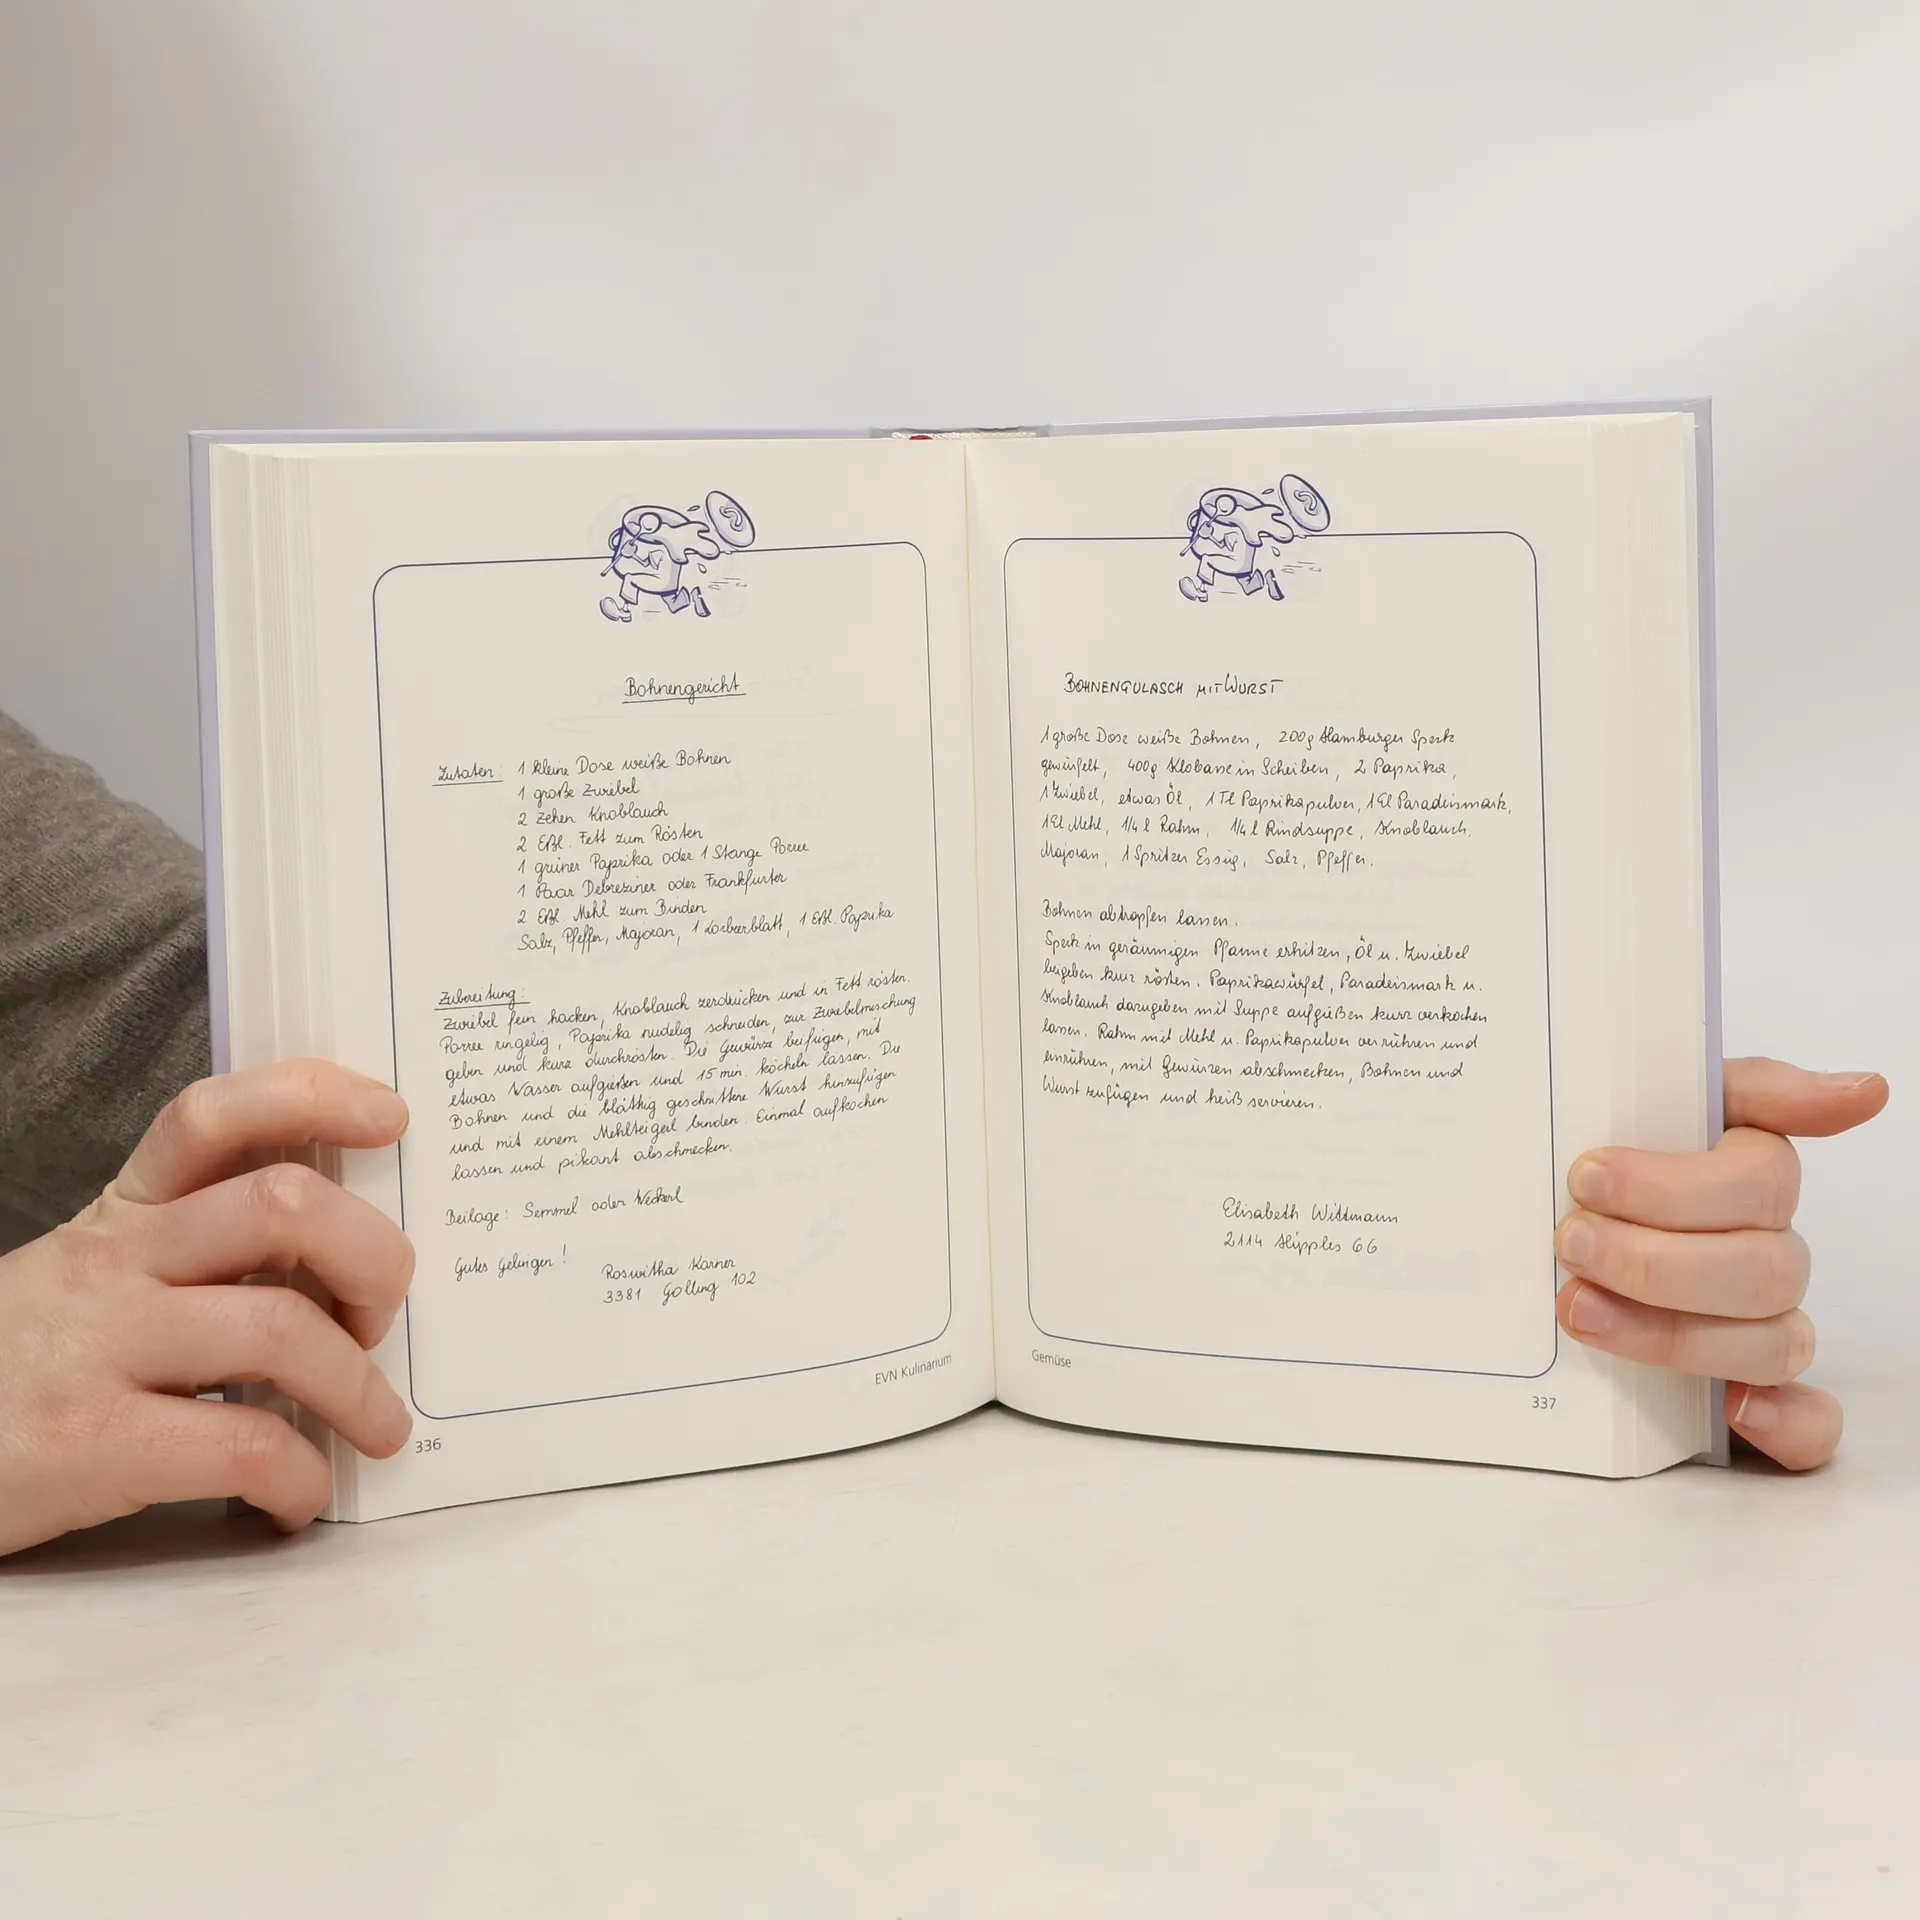 Bohnengericht
Zutaten: 1 kleine Dose weiße Bohnen
1 große Zwiebel
2 Zehen Knoblauch
2 Eßl. Fett zum Rösten
1 grüner Paprika oder 1 Stange Porree
1 Paar Debreziner oder Frankfurter
2 Eßl. Mehl zum Binden
Salz, Pfeffer, Majoran, 1 Lorbeerblatt, 1 Eßl. Paprika
Zubereitung:
Zwiebel fein hacken, Knoblauch zerdrücken und in Fett rösten.
Porree ringelig, Paprika nudelig schneiden, zur Zwiebelmischung
geben und kurz durchrösten. Die Gewürze beifügen, mit
etwas Wasser aufgießen und 15 min. köcheln lassen. Die
Bohnen und die blättrig geschnittene Wurst hinzufügen
und mit einem Mehlteigerl binden. Einmal aufkochen
lassen und pikant abschmecken.
Beilage: Semmel oder Weckerl
Gutes Gelingen!
Roswitha Karner
3381 Golling 102
EVN Kulinarium
336
BOHNENGULASCH MIT WURST
1 große Dose weiße Bohnen, 200g Hamburger Speck
gewürfelt, 400g Klobasse in Scheiben, 2 Paprika,
1 Zwiebel, etwas Öl, 1 Tl Paprikapulver, 1 El Paradeismark,
1 El Mehl, 1/4 l Rahm, 1/4 l Rindsuppe, Knoblauch,
Majoran, 1 Spritzer Essig, Salz, Pfeffer.
Bohnen abtropfen lassen.
Speck in geräumigen Pfanne erhitzen, Öl u. Zwiebel
beigeben kurz rösten. Paprikawürfel, Paradeismark u.
Knoblauch dazugeben mit Suppe aufgießen kurz verkochen
lassen. Rahm mit Mehl u. Paprikapulver verrühren und
einrühren, mit Gewürzen abschmecken, Bohnen und
Wurst zufügen und heiß servieren.
Elisabeth Wittmann
2114 Hipples 66
Gemüse
337